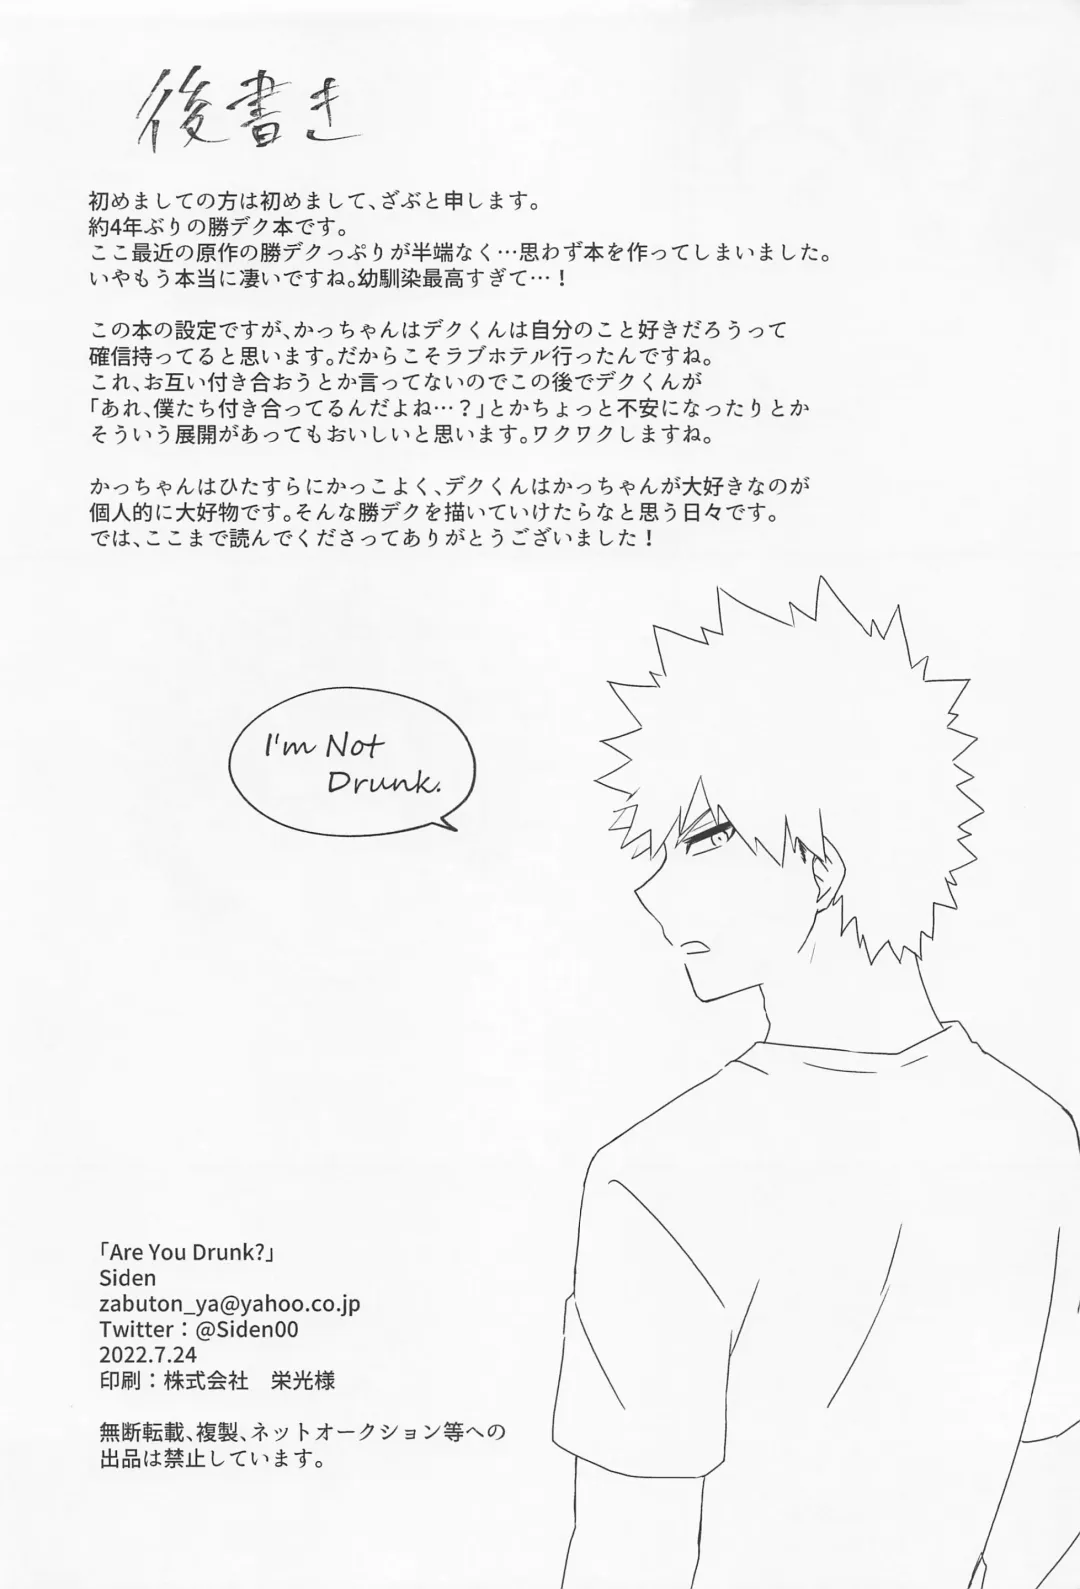 後書き
初めましての方は初めまして、ざぶと申します。
約4年ぶりの勝デク本です。
ここ最近の原作の勝デクっぷりが半端なく…思わず本を作ってしまいました。
いやもう本当に凄いですね。幼馴染最高すぎて…！
この本の設定ですが、かっちゃんはデクくんは自分のこと好きだろうって
確信持ってると思います。だからこそラブホテル行ったんですね。
これ、お互い付き合おうとか言ってないのでこの後でデクくんが
「あれ、僕たち付き合ってるんだよね…？」とかちょっと不安になったりとか
そういう展開があってもおいしいと思います。ワクワクしますね。
かっちゃんはひたすらにかっこよく、デクくんはかっちゃんが大好きなのが
個人的に大好物です。そんな勝デクを描いていけたらなと思う日々です。
では、ここまで読んでくださってありがとうございました！
I'm Not
Drunk.
「Are You Drunk?」
Siden
zabuton_ya@yahoo.co.jp
Twitter：@Siden00
2022.7.24
印刷：株式会社　栄光様
無断転載、複製、ネットオークション等への
出品は禁止しています。